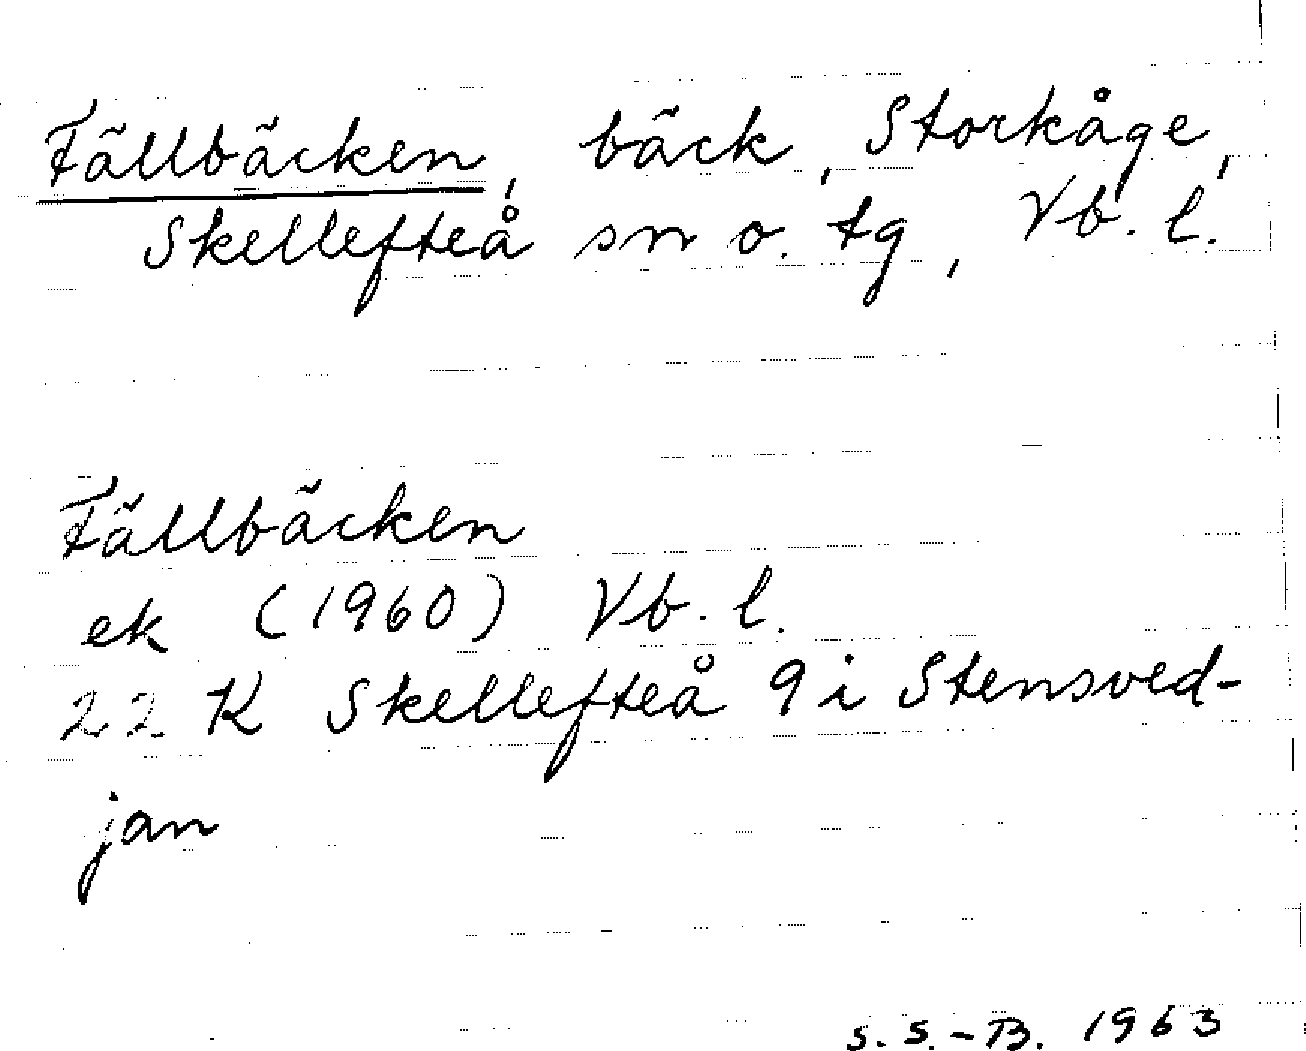 Fällbäcken, bäck, Storkåge,
Skellefteå sn o. tg, Vb. l.
Fällbäcken
ek (1960) Vb. l.
22 K Skellefteå 9 i Stensved-
jan
S. S.-B. 1963